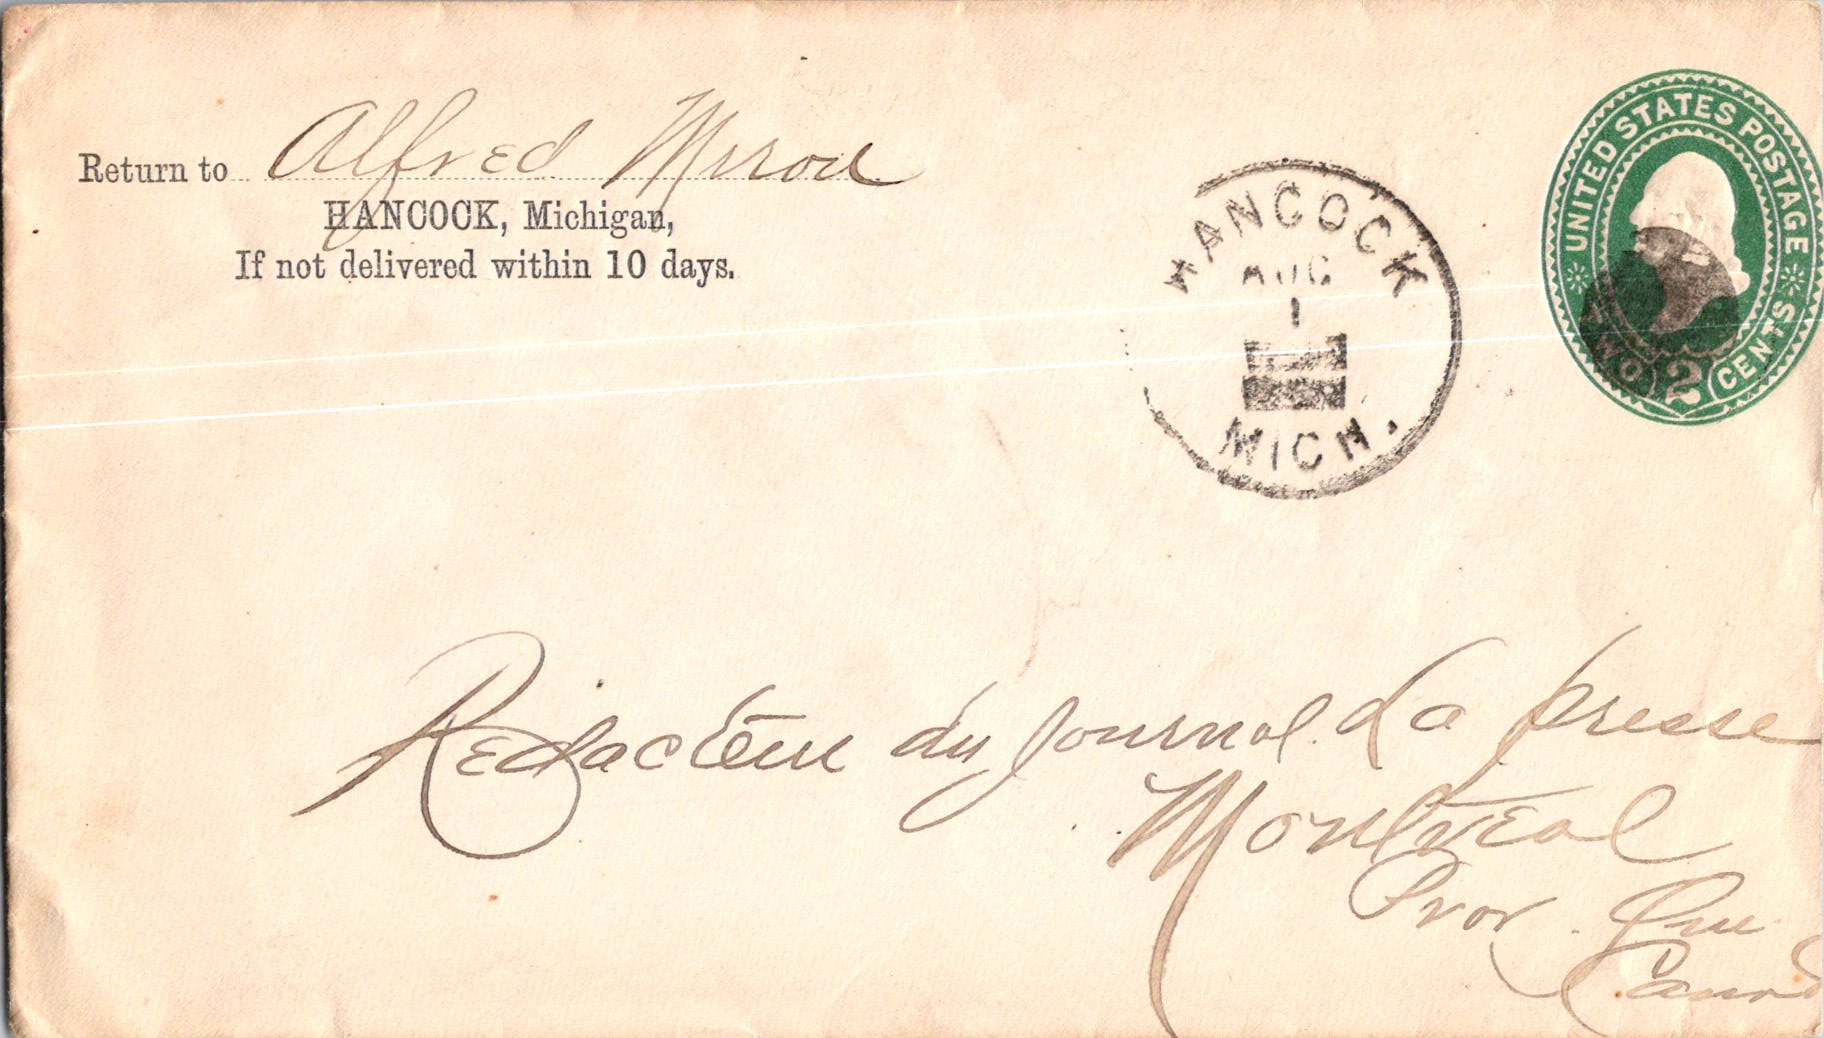 Return to Alfred
HANCOCK, Michigan,
If not delivered within 10 days.
HANCOCK
AUG
1
MICH.
UNITED STATES POSTAGE
TWO 2 CENTS
Redacteur du Journal La presse
Montreal
Prov. Que
Canad